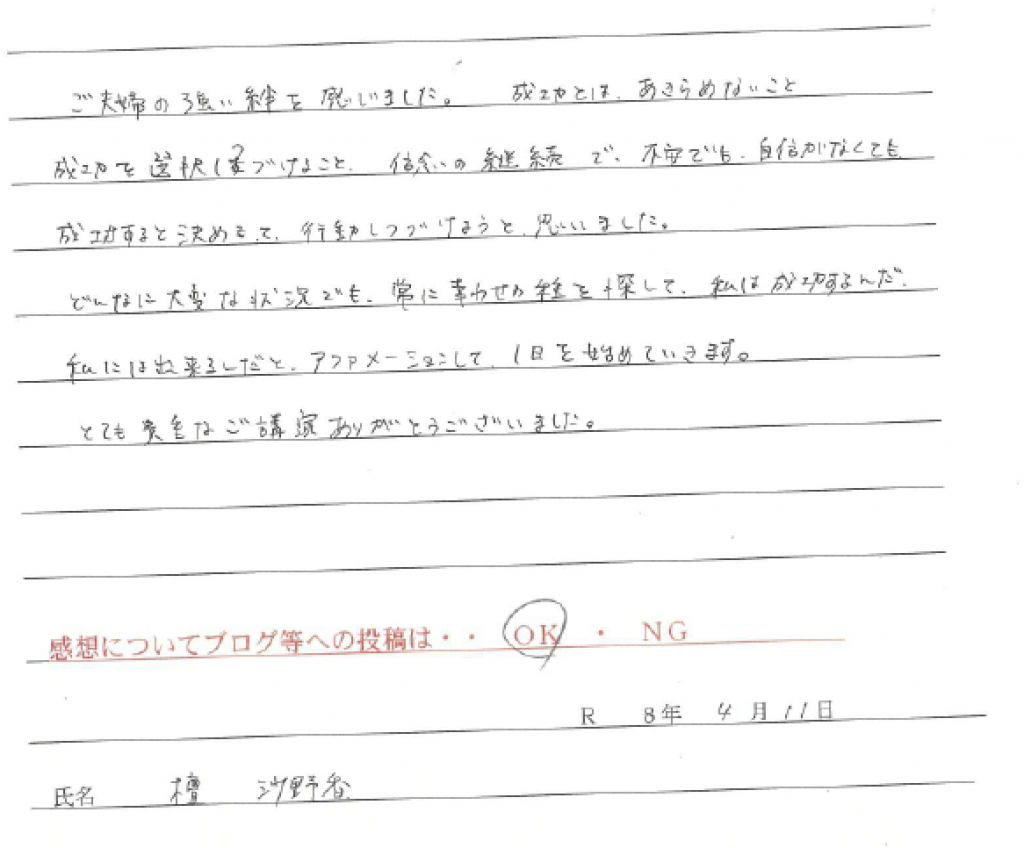 ご夫婦の強い絆を感じました。 成功とは、あきらめないこと
成功を選択しつづけること、信念の継続で、不安でも、自信がなくても
成功すると決めて、行動しつづけようと思いました。
どんなに大変な状況でも、常に幸わせの種を探して、私は成功するんだ、
私には出来るんだと、アファメーションして、1日を始めていきます。
とても貴重なご講演ありがとうございました。
感想についてブログ等への投稿は・・ OK ・ NG
R 8年 4月 11日
氏名 檀 沙野香